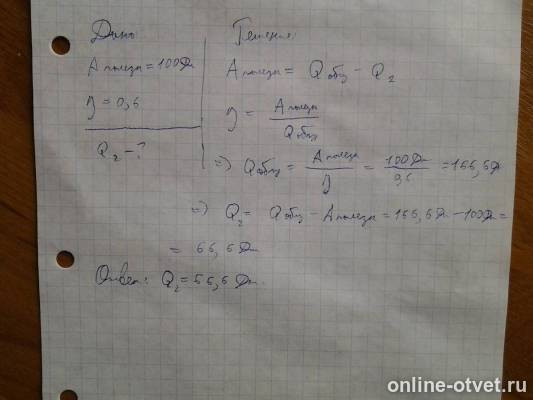 Дано:
A полезн = 100 Дж
η = 0,6
Q₂ - ?
Решение:
A полезн = Q общ - Q₂
η = A полезн / Q общ
=> Q общ = A полезн / η = 100 Дж / 0,6 = 166,6 Дж
=> Q₂ = Q общ - A полезн = 166,6 Дж - 100 Дж =
= 66,6 Дж
Ответ: Q₂ = 66,6 Дж.
online-otvet.ru